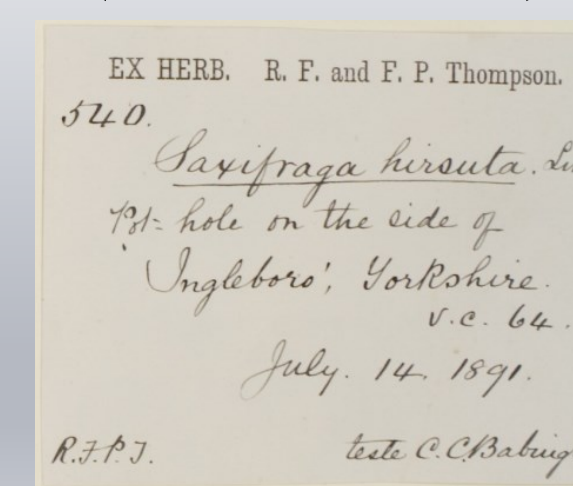 EX HERB. R. F. and F. P. Thompson.
540.
Saxifraga hirsuta. Lin
Pot-hole on the side of
Ingleboro', Yorkshire.
v.c. 64.
July. 14. 1891.
R.F.P.T. teste C.C.Babing